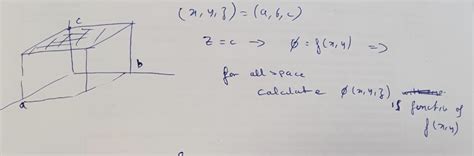 (x, y, z) = (a, b, c)
c
z = c → ϕ = f(x, y) ⇒
b
for all space
calculate ϕ(x, y, z) is function of
f(x, y)
a